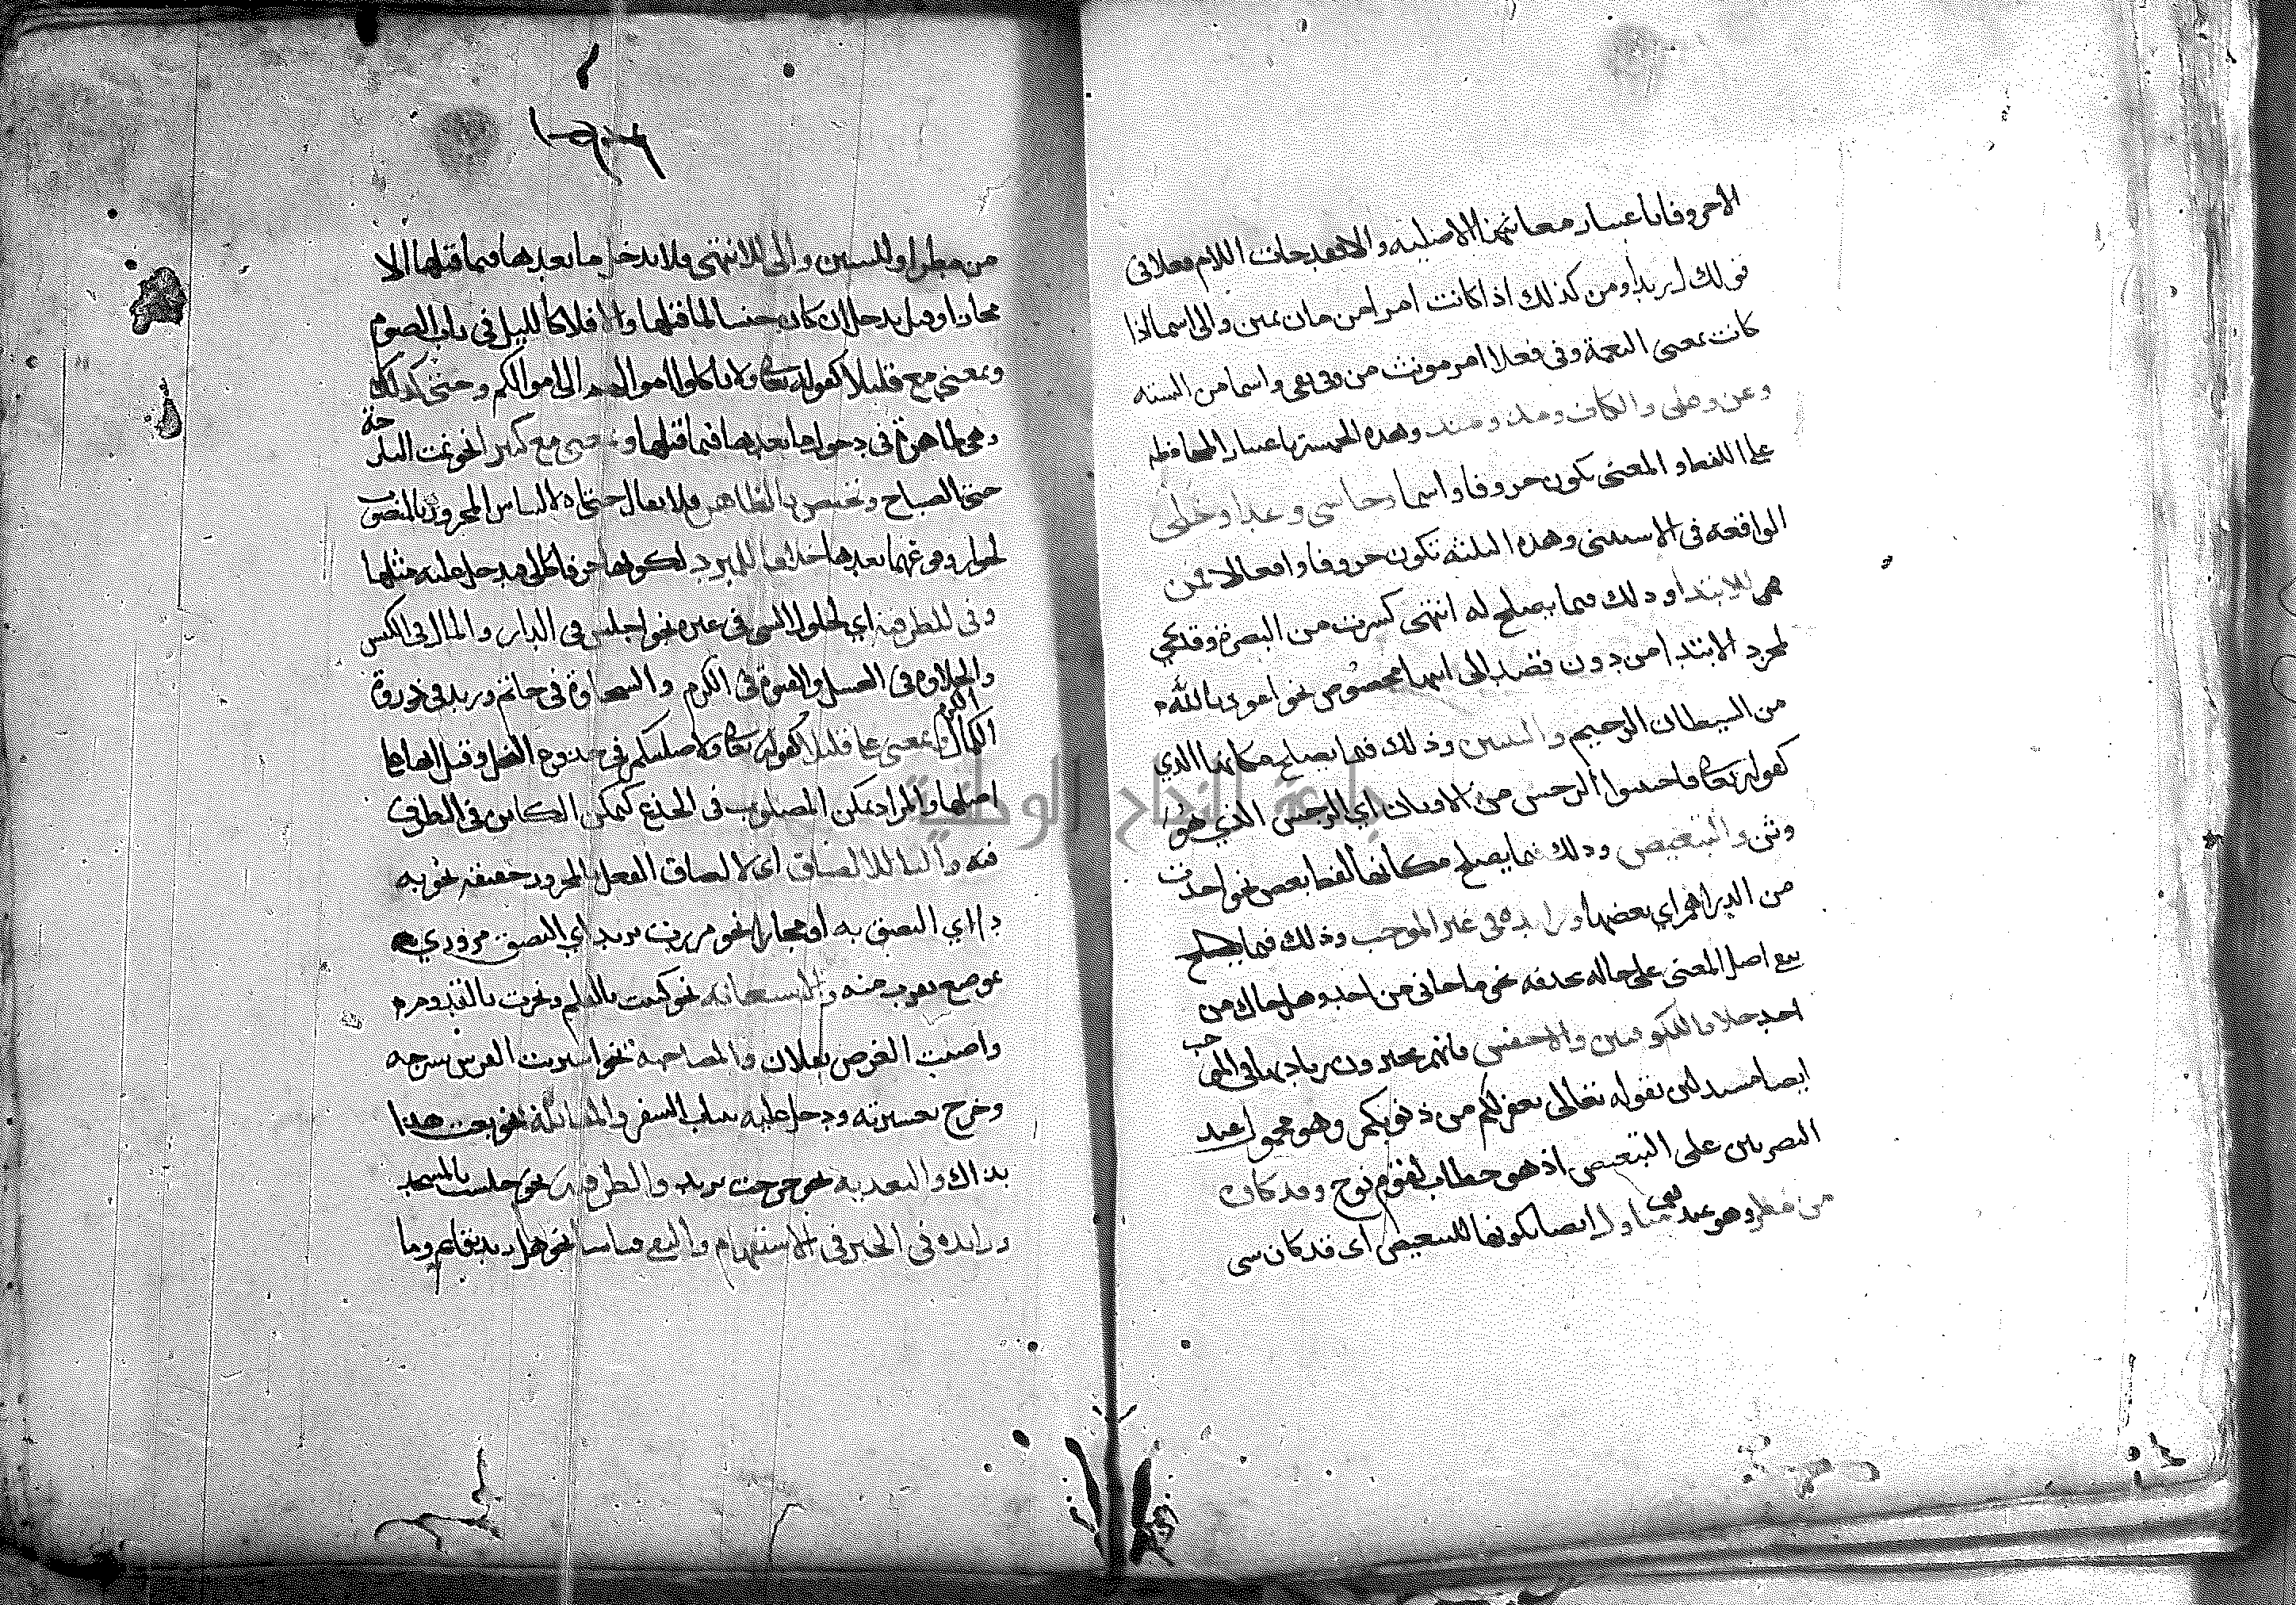 الاحروفا باعتبار معانيها الاصلية والا فقد جات اللام فعلا في
قولك ل زيدا ومن كذلك اذا كانت امرا من مان يمين والى اسما اذا
كانت بمعنى النعمة وفى فعلا امر مونث من وفى يفى واسما من الستة
وعن وعلى والكاف ومذ ومنذ وهذه الخمسة باعتبار المحافظة
على اللفظ و المعنى يكون حروفا واسما وحاشى وعدا وخلى
الواقعة في الاستثنى وهذه الثلثة تكون حروفا وافعالا فمن
هي للابتدا وذلك فيما يصلح له انتهى كسرت من البصرة وقد يجي
لمجرد الابتدا من دون قصد الى انتها مخصوص نحو اعوذ بالله
من الشيطان الرجيم والتبيين وذلك فيما يصلح مكانها الذي
كقوله تعالى فاجتنبوا الرجس من الاوثان اي الرجس الذي هو
وثن والتبعيض وذلك فيما يصلح مكانها لفظ بعض نحو اخذت
من الدراهم اي بعضها وزايده في غير الموجب وذلك فيما يصلح
اصل المعنى على حاله بحذفه نحو ما جاني من احد وهل جاك من
احد خلافا للكوفيين والاخفش فانهم يجيزون زيادتها في الموجب
ايضا مستدلين بقوله تعالى يغفر لكم من ذنوبكم وهو محمول عند
البصريين على التبعيض اذ هو خطاب لقوم نوح وقد كان
من مطر وهو عندهم متاول ايضا بكونها للتبعيض اى قد كان شي
من مطر او للتبيين والى للانتهى ولا يدخل ما بعدها فيما قبلها الا
مجازا وقيل يدخل ان كان جنسا لما قبلها والا فلا كالليل في باب الصوم
وبمعنى مع قليلا كقوله تعالى ولا تاكلوا اموالهم الى اموالكم وحتى كذلك
وهي ظاهرة في دخول ما بعدها فيما قبلها وبمعنى مع كثيرا نحو نمت البارحة
حتى الصباح وتختص بالظاهر فلا يقال حتاه لالتباس المجرور بالمنصوب
لجواز وقوعهما بعدها خلافا للمبرد لكونها حرفا كالى فدخل عليه مثلها
وفى للظرفية اي لحلول الشي في غيره نحو اجلس في الدار والمال في الكيس
والحلاوه في العسل و في الكرم والسخاوة في حاتم وزيد في ذروة
الكمال وبمعنى على قليلا كقوله تعالى ولاصلبنكم في جذوع النخل وقيل انها على
اصلها والمراد تمكن المصلوب في الجذع كتمكن الكاين في الظرف
فيه والبا للالصاق اى لالصاق الفعل بالمجرور حقيقة نحو به
دا اي التصق به او مجازا نحو مررت بزيد اي التصق مروري
بموضع يقرب منه والاستعانه نحو كتبت بالقلم ونجرت بالقدوم
واصبت الغرض بفلان والمصاحبة نحو اشتريت الفرس بسرجه
وخرج بعشيرته ودخل عليه بثياب السفر والمقابلة نحو بعت هذا
بذاك والتعديه نحو خرجت بزيد والظرفية نحو جلست بالمسجد
وزايده في الخبر في الاستفهام والنفي قياسا نحو هل زيد بقايم وما